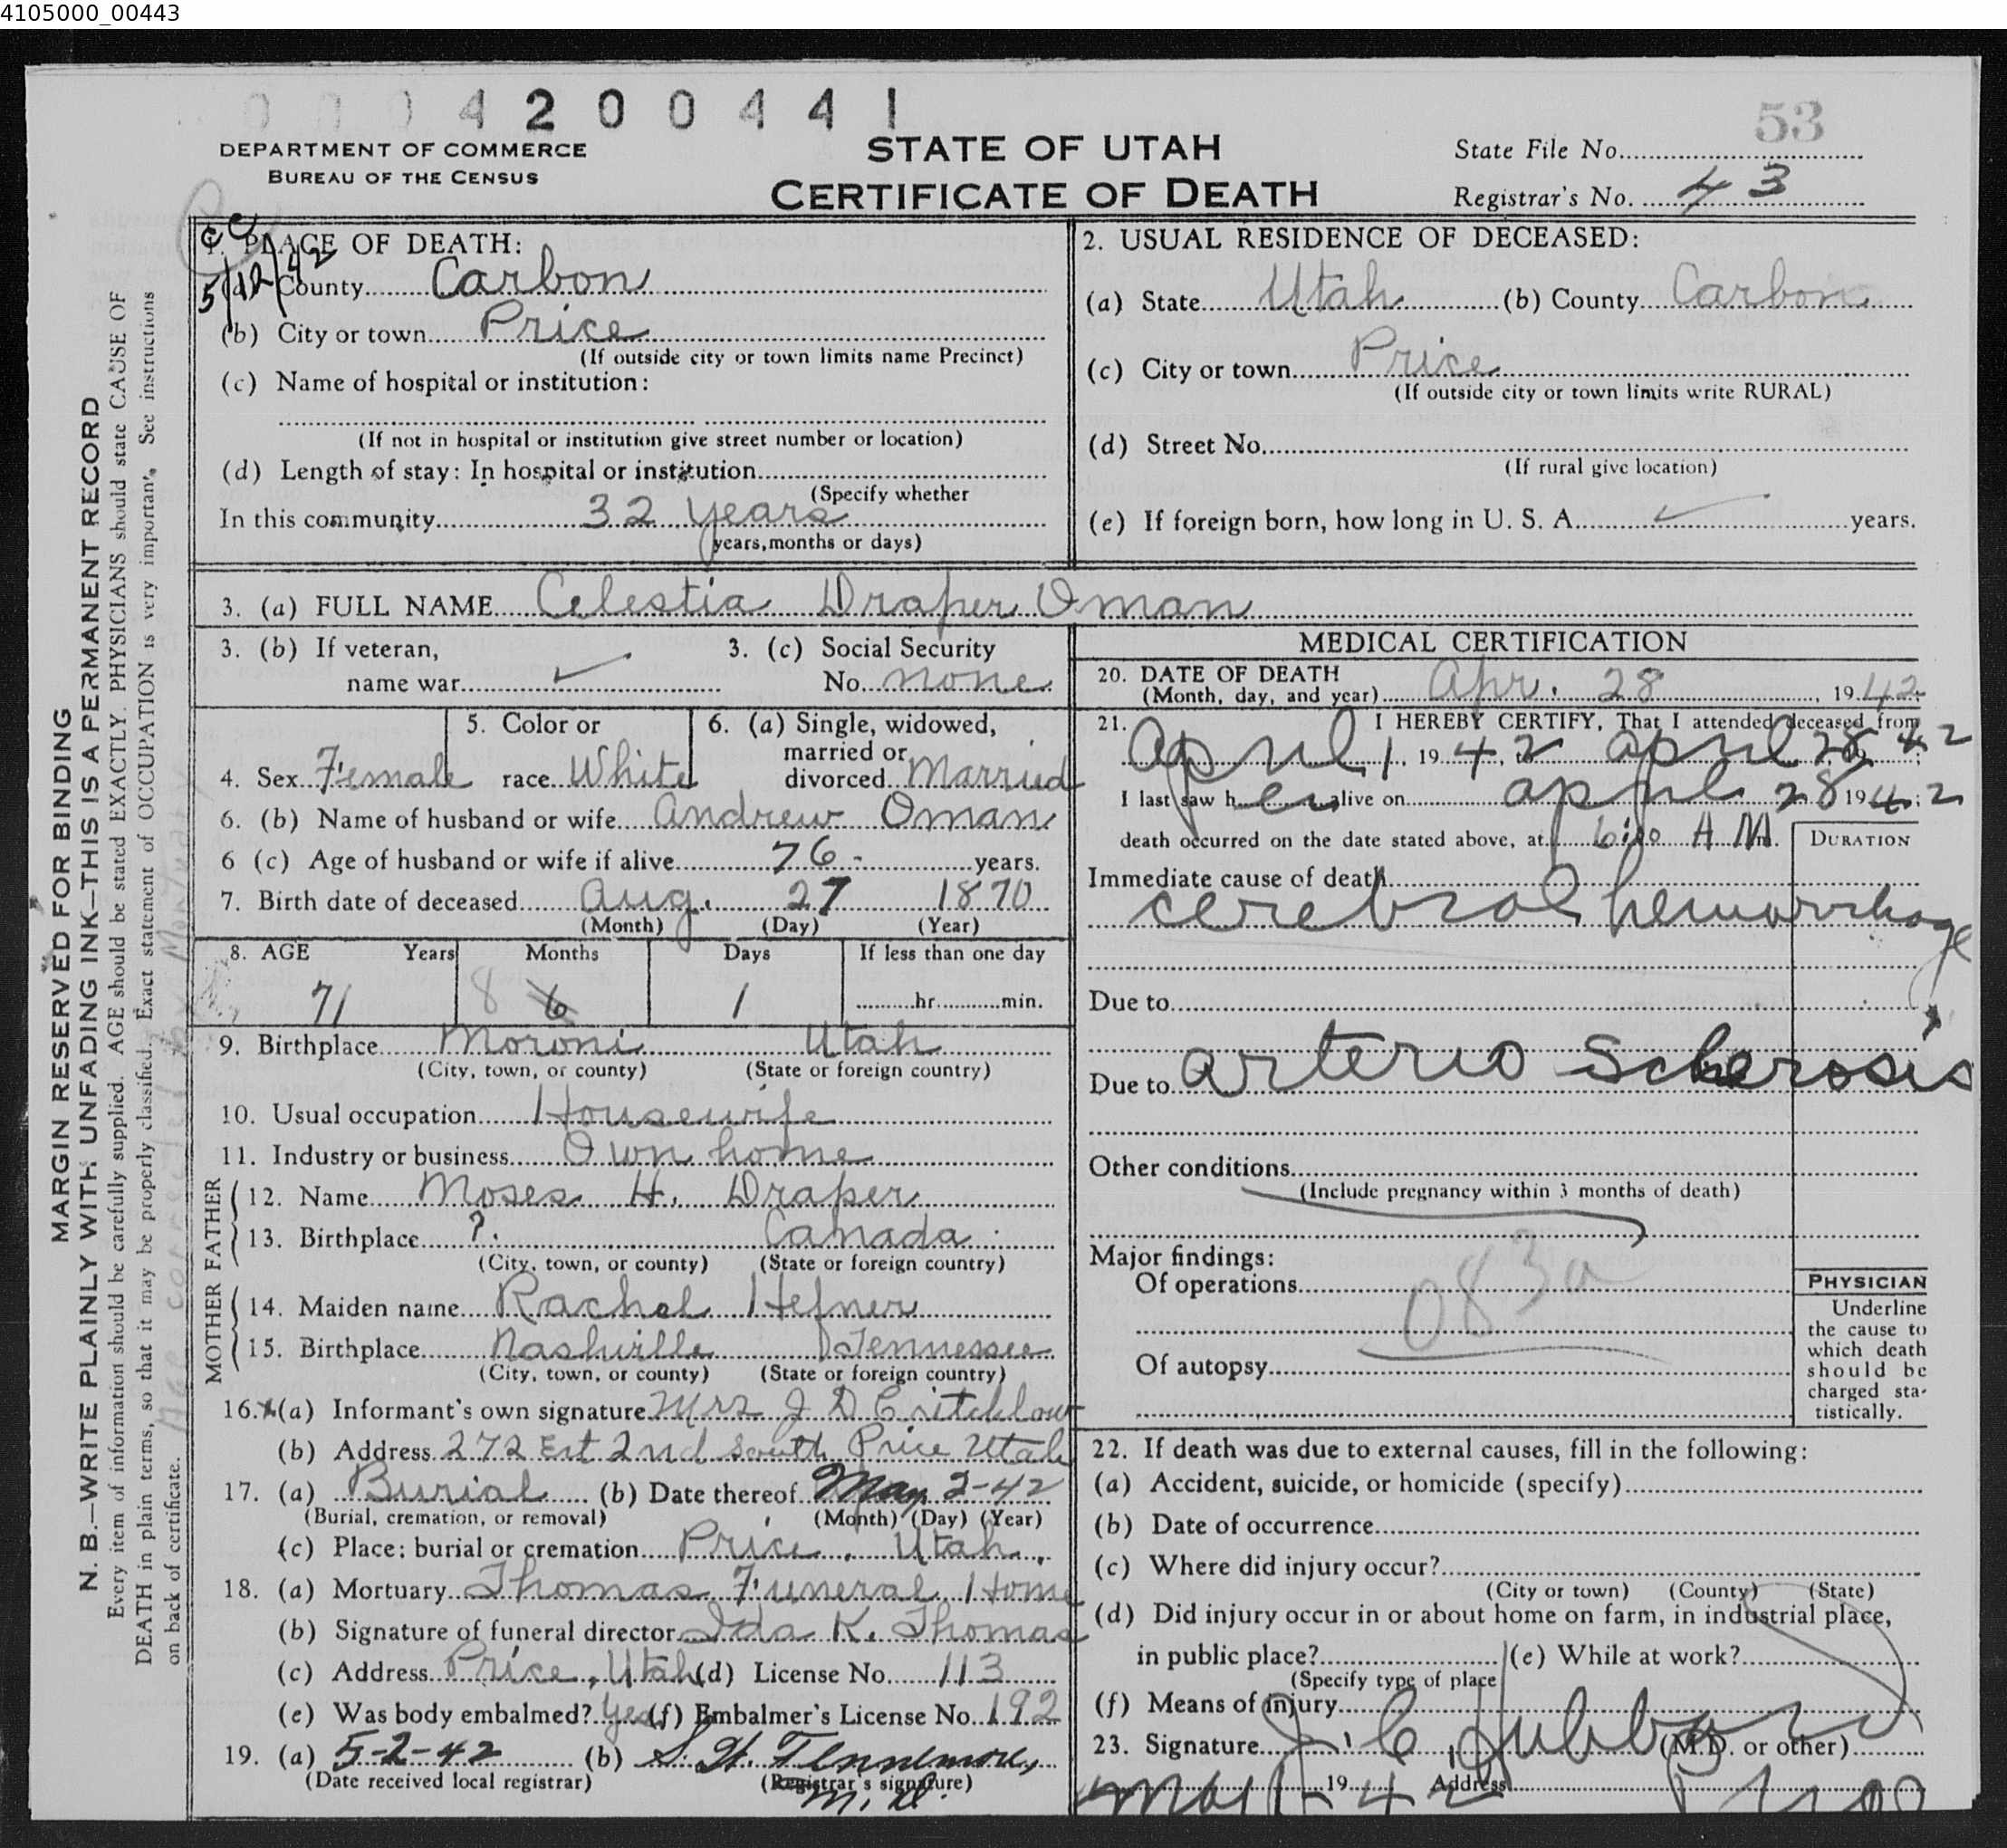 4105000_00443
0004200441
DEPARTMENT OF COMMERCE
BUREAU OF THE CENSUS
STATE OF UTAH
CERTIFICATE OF DEATH
53
State File No.
Registrar's No. 43
cc
5/12/42
1. PLACE OF DEATH:
(a) County Carbon
(b) City or town Price
(If outside city or town limits name Precinct)
(c) Name of hospital or institution:
(If not in hospital or institution give street number or location)
(d) Length of stay: In hospital or institution
(Specify whether
In this community 32 years
years, months or days)
2. USUAL RESIDENCE OF DECEASED:
(a) State Utah (b) County Carbon
(c) City or town Price
(If outside city or town limits write RURAL)
(d) Street No.
(If rural give location)
(e) If foreign born, how long in U. S. A. years.
3. (a) FULL NAME Celestia Draper Oman
3. (b) If veteran,
name war
3. (c) Social Security
No. none
4. Sex Female
5. Color or
race White
6. (a) Single, widowed,
married or
divorced Married
6. (b) Name of husband or wife Andrew Oman
6 (c) Age of husband or wife if alive 76- years.
7. Birth date of deceased Aug. 27 1870
(Month) (Day) (Year)
8. AGE Years Months Days If less than one day
71 8 6 1 hr. min.
9. Birthplace Moroni Utah
(City, town, or county) (State or foreign country)
10. Usual occupation Housewife
11. Industry or business Own home
FATHER
12. Name Moses H. Draper
13. Birthplace ?. Canada
(City, town, or county) (State or foreign country)
MOTHER
14. Maiden name Rachel Hefner
15. Birthplace Nashville Tennessee
(City, town, or county) (State or foreign country)
16. x(a) Informant's own signature Mrs J D Critchlow
(b) Address 272 Est 2nd South Price Utah
17. (a) Burial (b) Date thereof May 2-42
(Burial, cremation, or removal) (Month) (Day) (Year)
(c) Place: burial or cremation Price, Utah.
18. (a) Mortuary Thomas Funeral Home
(b) Signature of funeral director Ida K. Thomas
(c) Address Price, Utah (d) License No. 113
(e) Was body embalmed? Yes (f) Embalmer's License No. 192
19. (a) 5-2-42 (b) S. H. Tennemore,
(Date received local registrar) (Registrar's signature)
M. D.
MEDICAL CERTIFICATION
20. DATE OF DEATH
(Month, day, and year) Apr. 28, 1942
21. I HEREBY CERTIFY, That I attended deceased from
April 1, 1942, to April 28 42
I last saw her alive on April 28 1942
death occurred on the date stated above, at A.M.
DURATION
Immediate cause of death
cerebral hemorrhage
Due to
Due to arterio Sclerosis
Other conditions
(Include pregnancy within 3 months of death)
Major findings:
Of operations
083a
Of autopsy
PHYSICIAN
Underline
the cause to
which death
should be
charged sta-
tistically.
22. If death was due to external causes, fill in the following:
(a) Accident, suicide, or homicide (specify)
(b) Date of occurrence
(c) Where did injury occur?
(City or town) (County) (State)
(d) Did injury occur in or about home on farm, in industrial place,
in public place? (e) While at work?
(Specify type of place)
(f) Means of injury
23. Signature J. C. Hubbard (M.D. or other)
May 1- 1942 Address
MARGIN RESERVED FOR BINDING
N. B.—WRITE PLAINLY WITH UNFADING INK—THIS IS A PERMANENT RECORD
Every item of information should be carefully supplied. AGE should be stated EXACTLY. PHYSICIANS should state CAUSE OF
DEATH in plain terms, so that it may be properly classified. Exact statement of OCCUPATION is very important. See instructions
on back of certificate.
Age corrected by Mortuary